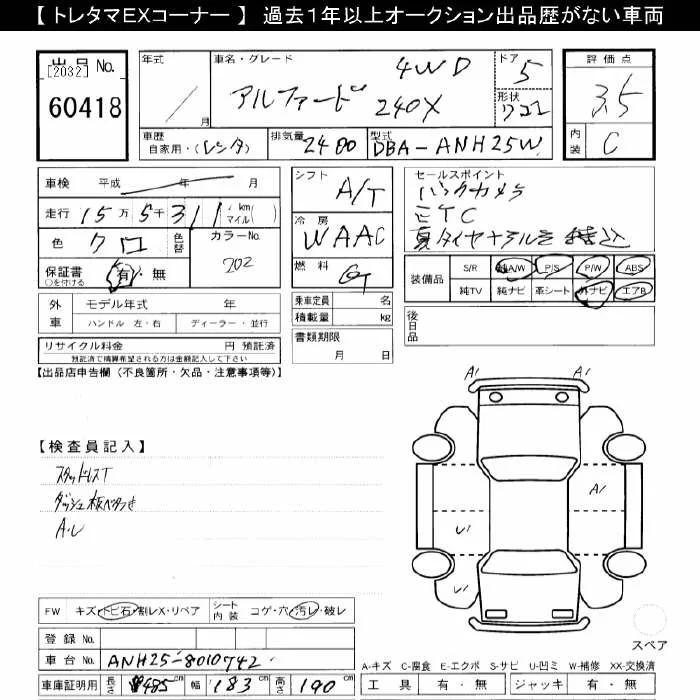 【 トレタマEXコーナー 】 過去1年以上オークション出品歴がない車両
出品 No.
[2032]
60418
年式
／ 月
車名・グレード
4WD
アルファード 240X
ドア 5
形状 ワゴン
評価点
3.5
内装 C
車歴
自家用・(レンタ)
排気量 2400
型式 DBA-ANH25W
車検 平成 年 月
走行 15万5千311(km/マイル)
色 クロ
色替
カラーNo. 202
保証書 有・無
○を付ける
シフト A/T
冷房 WAAC
燃料
乗車定員 名
積載量 kg
書類期限
月 日
セールスポイント
バックカメラ
ETC
夏タイヤ+アルミ積込
装備品
S/R 純A/W P/S P/W ABS
純TV 純ナビ 革シート 外ナビ エアB
後日品
外車
モデル年式 年
ハンドル 左・右 ディーラー・並行
リサイクル料金 円 預託済
預託済で精算希望される方は金額記入して下さい
【出品店申告欄 (不良箇所・欠品・注意事項等)】
A1 A1
【検査員記入】
スタッドレスT
ダッシュ板ベタつき
A.U
A1
U1
U1
FW キズ・トビ石・割レX・リペア
シート内装 コゲ・穴・汚レ・破レ
スペア
登録 No.
車台 No. ANH25-8010742
車庫証明用 長さ 485 幅 183 高さ 190
A-キズ C-腐食 E-エクボ S-サビ U-凹ミ W-補修 XX-交換済
工具 有・無 ジャッキ 有・無